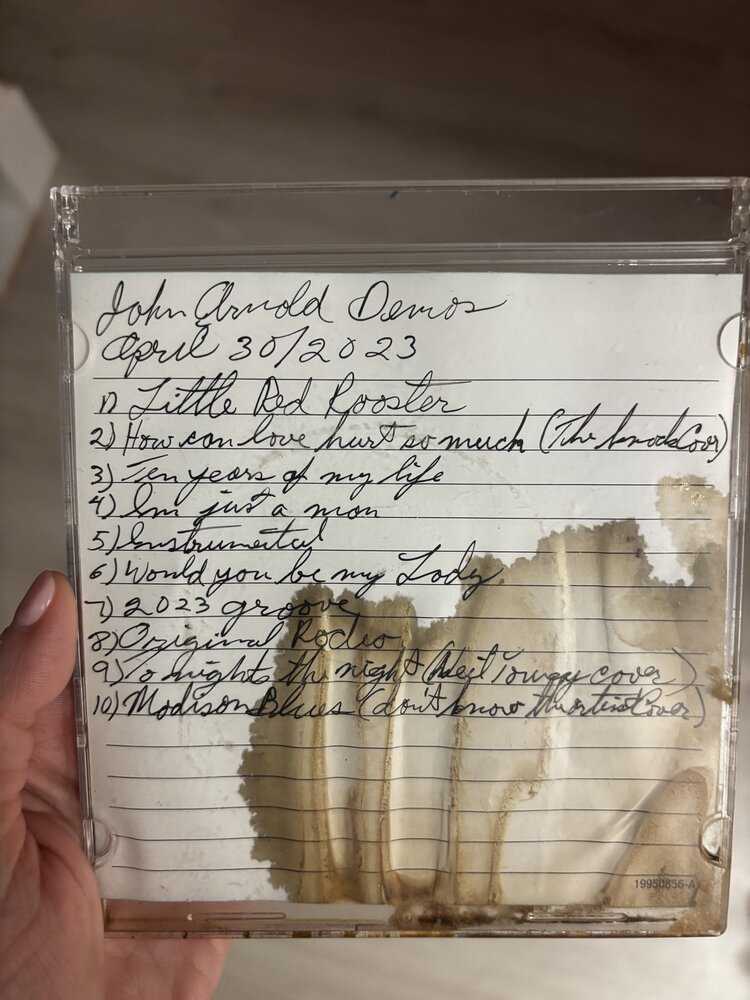 John Arnold Demos
April 30/2023
1) Little Red Rooster
2) How can love hurt so much (The Cover)
3) Ten years of my life
4) Im just a man
5) Instrumental
6) Would you be my Lady.
7) 2023 groove
8) Original Rodeo
9) To nights the night (Neil cover)
10) Madison Blues (don't know Cover)
19950856-A